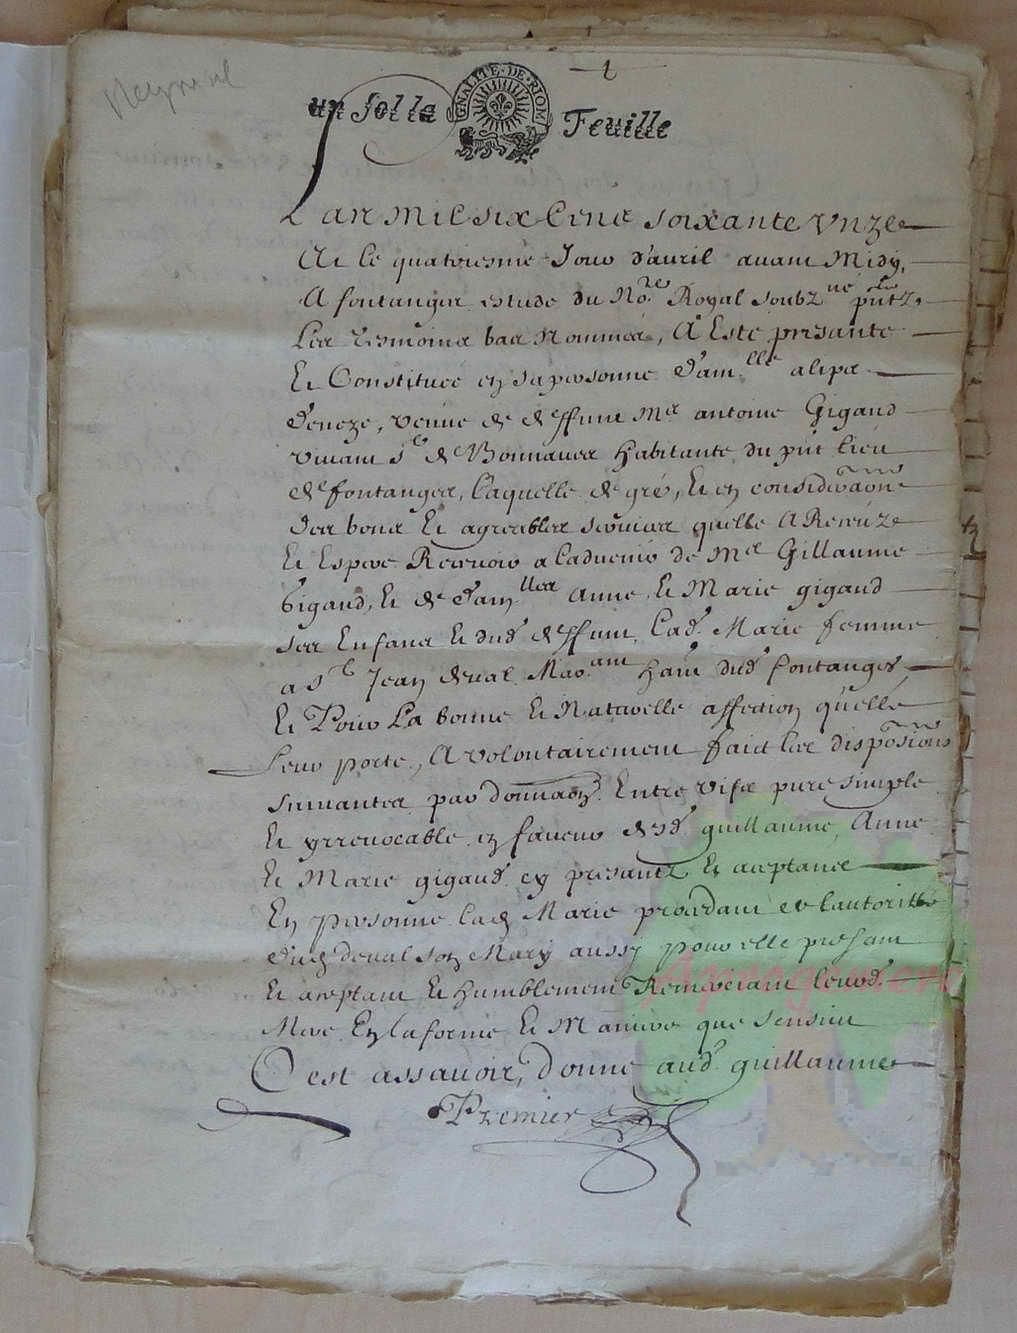 1
un Solla Feuille
GNALITE·DE·RIOM
L an mil six Cens soixante Unze
Et le quatriesme Jour d'auril auant Midy,
A fontanges estude du No.re Royal soubz.né pñtz
Les tesmoins bas Nommés, A Esté presante
Et Constituée en sa personne Dam.lle alips
deneze, veuue de deffunt M.e antoine Gigaud
viuant S.r de Bonnaues habitante du pñt lieu
de fontanges, laquelle de gré, Et en consideraõn
des bons Et agreables seruices quelle A Receuz
Et Espere Receuoir a laduenir de M.e Gillaume
Gigaud, Et de Dam.lles Anne, Et Marie gigaud
ses Enfans Et dud. deffunt, Lad. Marie femme
a S.r Jean deual Mar.ant haũt dud. fontanges,
Et Pour La bonne Et Naturelle affection quelle
leur porte, A volontairement faict les disposiõns
suiuantes par donnaõn Entre vifs pure simple
Et yrreuocable en faueur desd. guillaume, Anne
Et Marie gigaud ey presantz Et aceptans
En personne lad. Marie procedant de lautoritte
dud. deual son Mary aussy pour elle presant
Et aceptant Et humblement Remerciant leurd.
Mere En la forme Et Maniere que sensuit
C'est assauoir, Donne aud. guillaume
Premier